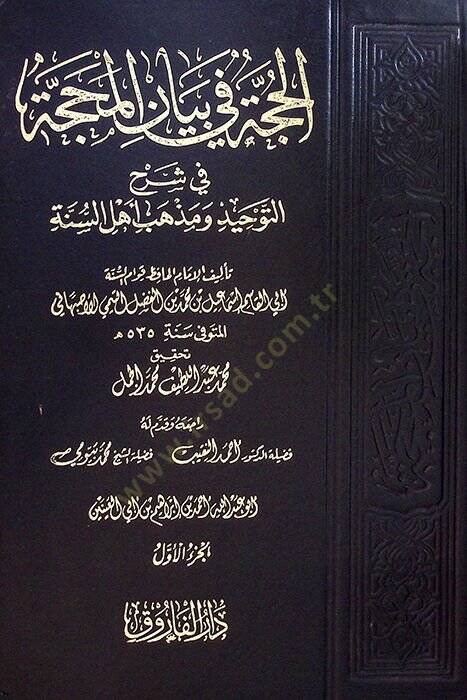 الحُجَّة في بَيَانِ المَحَجَّة
في شَرْحِ
التَّوْحِيدِ وَمَذْهَبِ أَهْلِ السُّنَّةِ
تأليف الإمام الحافظ قوام السنة
أبي القاسم إسماعيل بن محمد بن الفضل التيمي الأصبهاني
المتوفى سنة ٥٣٥ هـ
تحقيق
محمد عبد اللطيف محمد الجمل
راجعه وقدم له
فضيلة الدكتور أحمد النقيب فضيلة الشيخ محمد بيومي
أبو عبد الله أحمد بن إبراهيم بن أبي العينين
الجزء الأول
دَارُ الفَارُوق